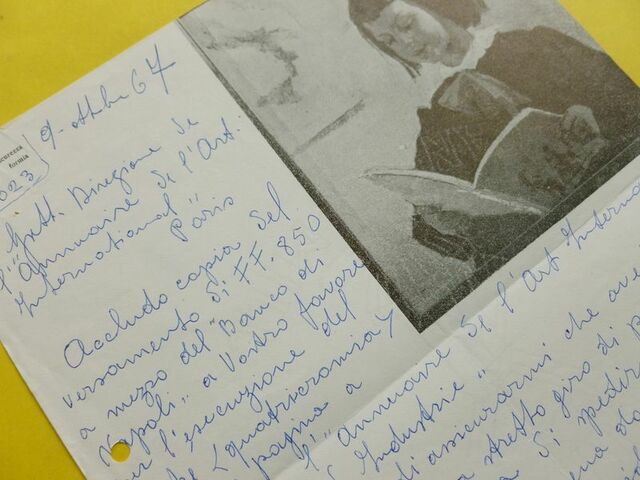 9 - ottobre 67
curezza
formia
023
Gett. Direzione de
l' "Annuaire de l'Art
International"
Paris
Accludo copia del
versamento di FF. 850
a mezzo del "Banco di
Napoli" a Vostro favore
per l'esecuzione del
quadricromia
pagina a
l' "annuaire de l'Art Interna
Industrie"
di assicurarmi che ave
a stretto giro di p
di spedir